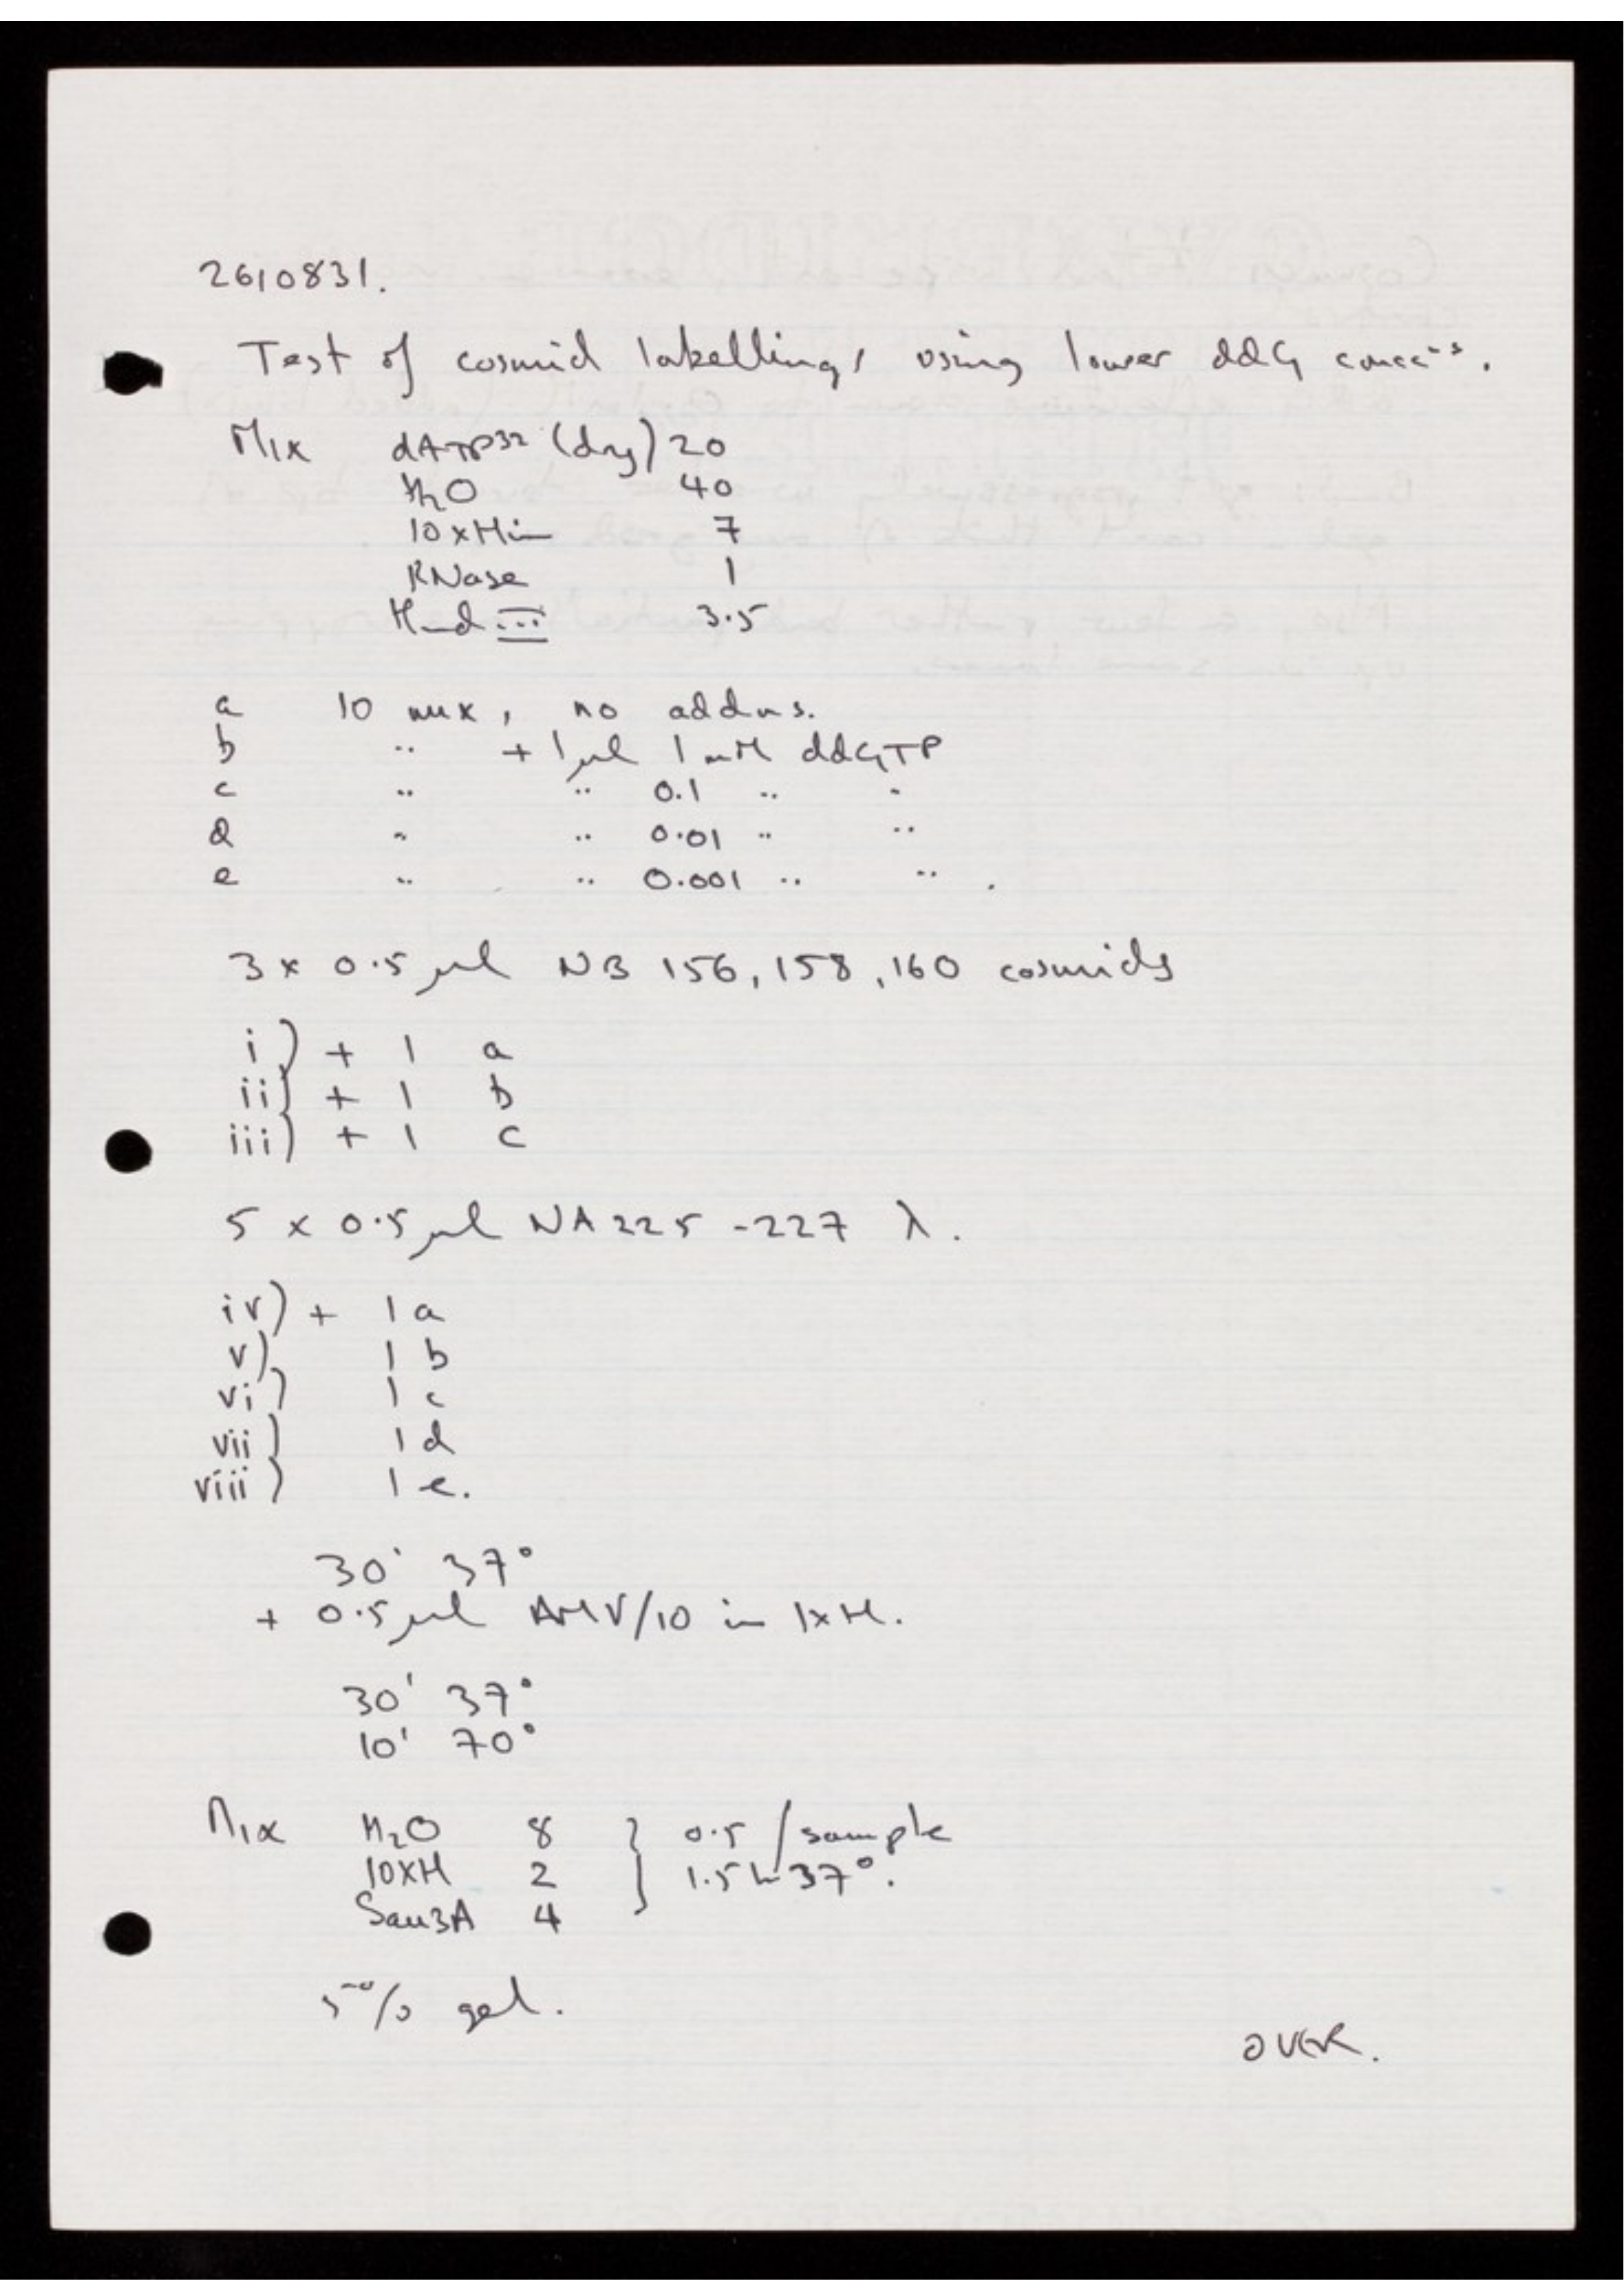 2610831.
Test of cosmid labellings using lower ddG concns.
Mix dATP32 (dry) 20
H2O 40
10xHin 7
RNase 1
Hind III 3.5
a 10 mix, no addns.
b " + 1 µl 1 mM ddGTP
c " " 0.1 " "
d " " 0.01 " "
e " " 0.001 " " .
3 x 0.5 µl NB 156, 158, 160 cosmids
i) + 1 a
ii) + 1 b
iii) + 1 c
5 x 0.5 µl NA 225 - 227 λ.
iv) + 1 a
v) 1 b
vi) 1 c
vii) 1 d
viii) 1 e.
30' 37°
+ 0.5 µl AMV/10 in 1xH.
30' 37°
10' 70°
Mix H2O 8 } 0.5 / sample
10xH 2 } 1.5 h 37°.
Sau3A 4
5% gel.
OVER.